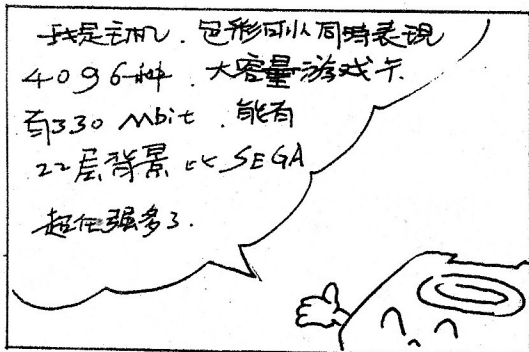 我是主机．色彩可以同時表現
4096种．大容量游戏卡
有330 Mbit．能有
22层背景 比 SEGA
超任强多了．